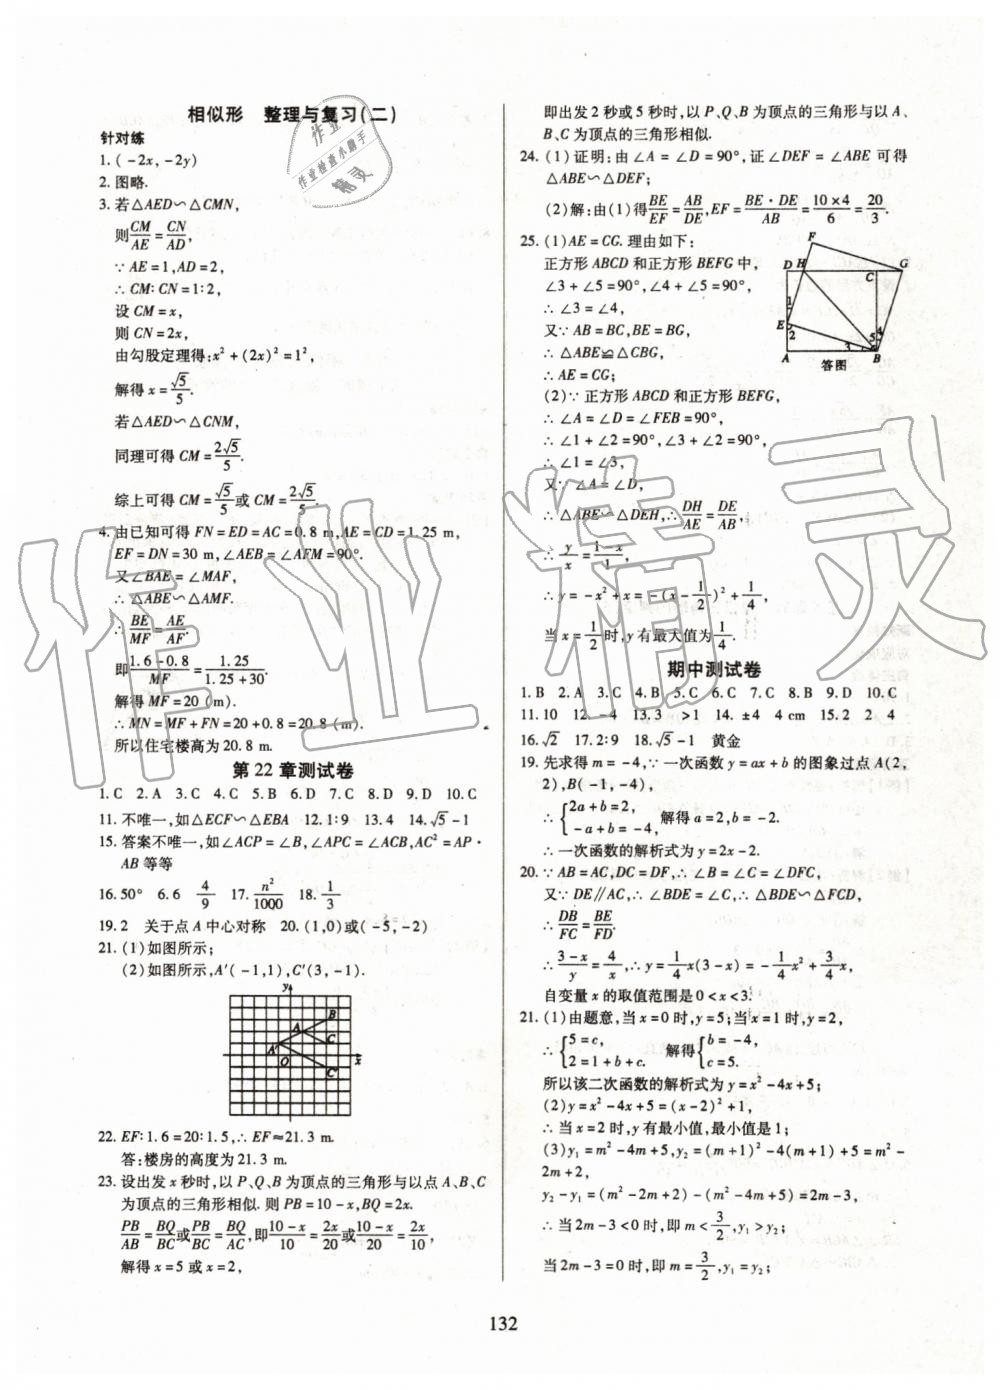 相似形 整理与复习(二)
针对练
1. (-2x, -2y)
2. 图略.
3. 若△AED∽△CMN,
则CM/AE=CN/AD,
∵AE=1,AD=2,
∴CM∶CN=1∶2,
设CM=x,
则CN=2x,
由勾股定理得:x²+(2x)²=1²,
解得x=√5/5.
若△AED∽△CNM,
同理可得CM=2√5/5.
综上可得CM=√5/5或CM=2√5/5.
4. 由已知可得FN=ED=AC=0.8 m,AE=CD=1.25 m,
EF=DN=30 m,∠AEB=∠AFM=90°.
又∠BAE=∠MAF,
∴△ABE∽△AMF.
∴BE/MF=AE/AF.
即(1.6-0.8)/MF=1.25/(1.25+30).
解得MF=20 (m).
∴MN=MF+FN=20+0.8=20.8 (m).
所以住宅楼高为20.8 m.
第22章测试卷
1. C 2. A 3. C 4. C 5. B 6. D 7. C 8. D 9. D 10. C
11. 不唯一,如△ECF∽△EBA 12. 1∶9 13. 4 14. √5-1
15. 答案不唯一,如∠ACP=∠B,∠APC=∠ACB,AC²=AP·
AB等等
16. 50° 6. 6 4/9 17. n²/1000 18. 1/3
19. 2 关于点A中心对称 20. (1,0)或(-5,-2)
21. (1)如图所示;
(2)如图所示,A′(-1,1),C′(3,-1).
y
B
A
C
A′
O
x
C′
22. EF∶1.6=20∶1.5,∴EF≈21.3 m.
答:楼房的高度为21.3 m.
23. 设出发x秒时,以P、Q、B为顶点的三角形与以点A、B、C
为顶点的三角形相似. 则PB=10-x,BQ=2x.
PB/AB=BQ/BC或PB/BC=BQ/AC,即(10-x)/10=2x/20或(10-x)/20=2x/10,
解得x=5或x=2,
即出发2秒或5秒时,以P、Q、B为顶点的三角形与以A、
B、C为顶点的三角形相似.
24. (1)证明:由∠A=∠D=90°,证∠DEF=∠ABE可得
△ABE∽△DEF;
(2)解:由(1)得BE/EF=AB/DE,EF=BE·DE/AB=10×4/6=20/3.
25. (1)AE=CG. 理由如下:
正方形ABCD和正方形BEFG中,
∠3+∠5=90°,∠4+∠5=90°,
∴∠3=∠4.
又∵AB=BC,BE=BG,
∴△ABE≌△CBG,
∴AE=CG;
F
D H C G
1
E
2
3 5 4
A B
答图
(2)∵正方形ABCD和正方形BEFG,
∴∠A=∠D=∠FEB=90°,
∴∠1+∠2=90°,∠3+∠2=90°,
∴∠1=∠3,
又∵∠A=∠D,
∴△ABE∽△DEH,∴DH/AE=DE/AB,
∴y/x=(1-x)/1,
∴y=-x²+x=-(x-1/2)²+1/4,
当x=1/2时,y有最大值为1/4.
期中测试卷
1. B 2. A 3. C 4. B 5. C 6. C 7. C 8. B 9. D 10. C
11. 10 12. -4 13. 3 >1 14. ±4 4 cm 15. 2 2 4
16. √2 17. 2∶9 18. √5-1 黄金
19. 先求得m=-4,∵一次函数y=ax+b的图象过点A(2,
2),B(-1,-4),
∴{2a+b=2, -a+b=-4, 解得a=2,b=-2.
∴一次函数的解析式为y=2x-2.
20. ∵AB=AC,DC=DF,∴∠B=∠C=∠DFC,
又∵DE∥AC,∴∠BDE=∠C,∴△BDE∽△FCD,
∴DB/FC=BE/FD.
∴(3-x)/y=4/x,∴y=1/4x(3-x)=-1/4x²+3/4x,
自变量x的取值范围是0<x<3.
21. (1)由题意,当x=0时,y=5;当x=1时,y=2,
∴{5=c, 2=1+b+c. 解得{b=-4, c=5.
所以该二次函数的解析式为y=x²-4x+5;
(2)y=x²-4x+5=(x-2)²+1,
∴当x=2时,y有最小值,最小值是1;
(3)y₁=m²-4m+5,y₂=(m+1)²-4(m+1)+5=m²-
2m+2,
y₂-y₁=(m²-2m+2)-(m²-4m+5)=2m-3,
∴当2m-3<0时,即m<3/2,y₁>y₂;
当2m-3=0时,即m=3/2,y₁=y₂;
132
作业精灵
作业检查小助手